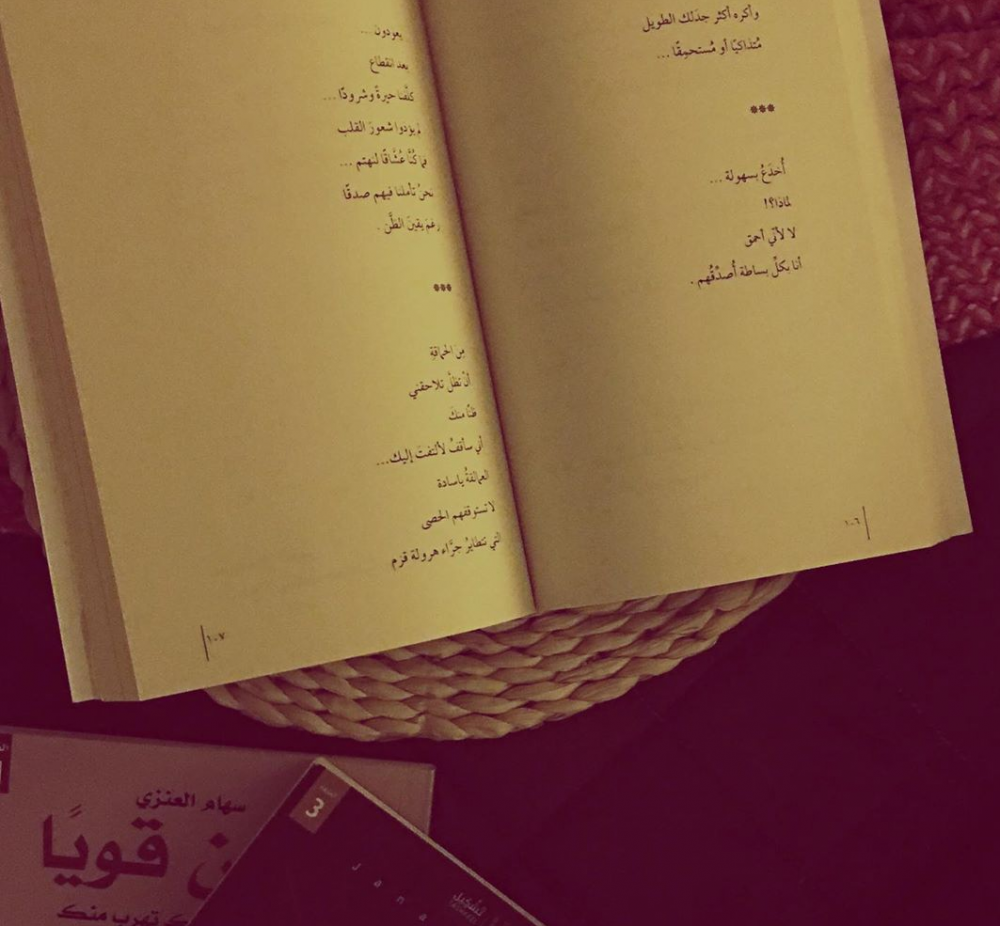 وأكره أكثر جدَلك الطويل
مُتذاكيًا أو مُستحمِقًا...
•••
أُخدَعُ بسهولة ...
لماذا؟!
لا لأنّي أحمق
أنا بكلِّ بساطة أُصدِّقُهم .
١٠٦
يعودون ...
بعد انقطاع
كلَّفنا حيرةً وشرودًا ...
لم يؤذوا شعورَ القلب
فما كُنَّا عُشَّاقًا لنهتم ...
نحنُ تأملنا فيهم صدقًا
رغمَ يقينِ الظَّن .
•••
مِن الحماقةِ
أنْ تظلَّ تلاحقني
ظنًّا منكَ
أني سأقفُ لألتفتَ إليك...
العمالقةُ ياسادة
لا تستوقفهم الحصى
التي تتطايرُ جرَّاء هرولة قزم
١٠٧
سهام العنزي
ن قويًا
تهرب منك
3
Jana
تشكيل